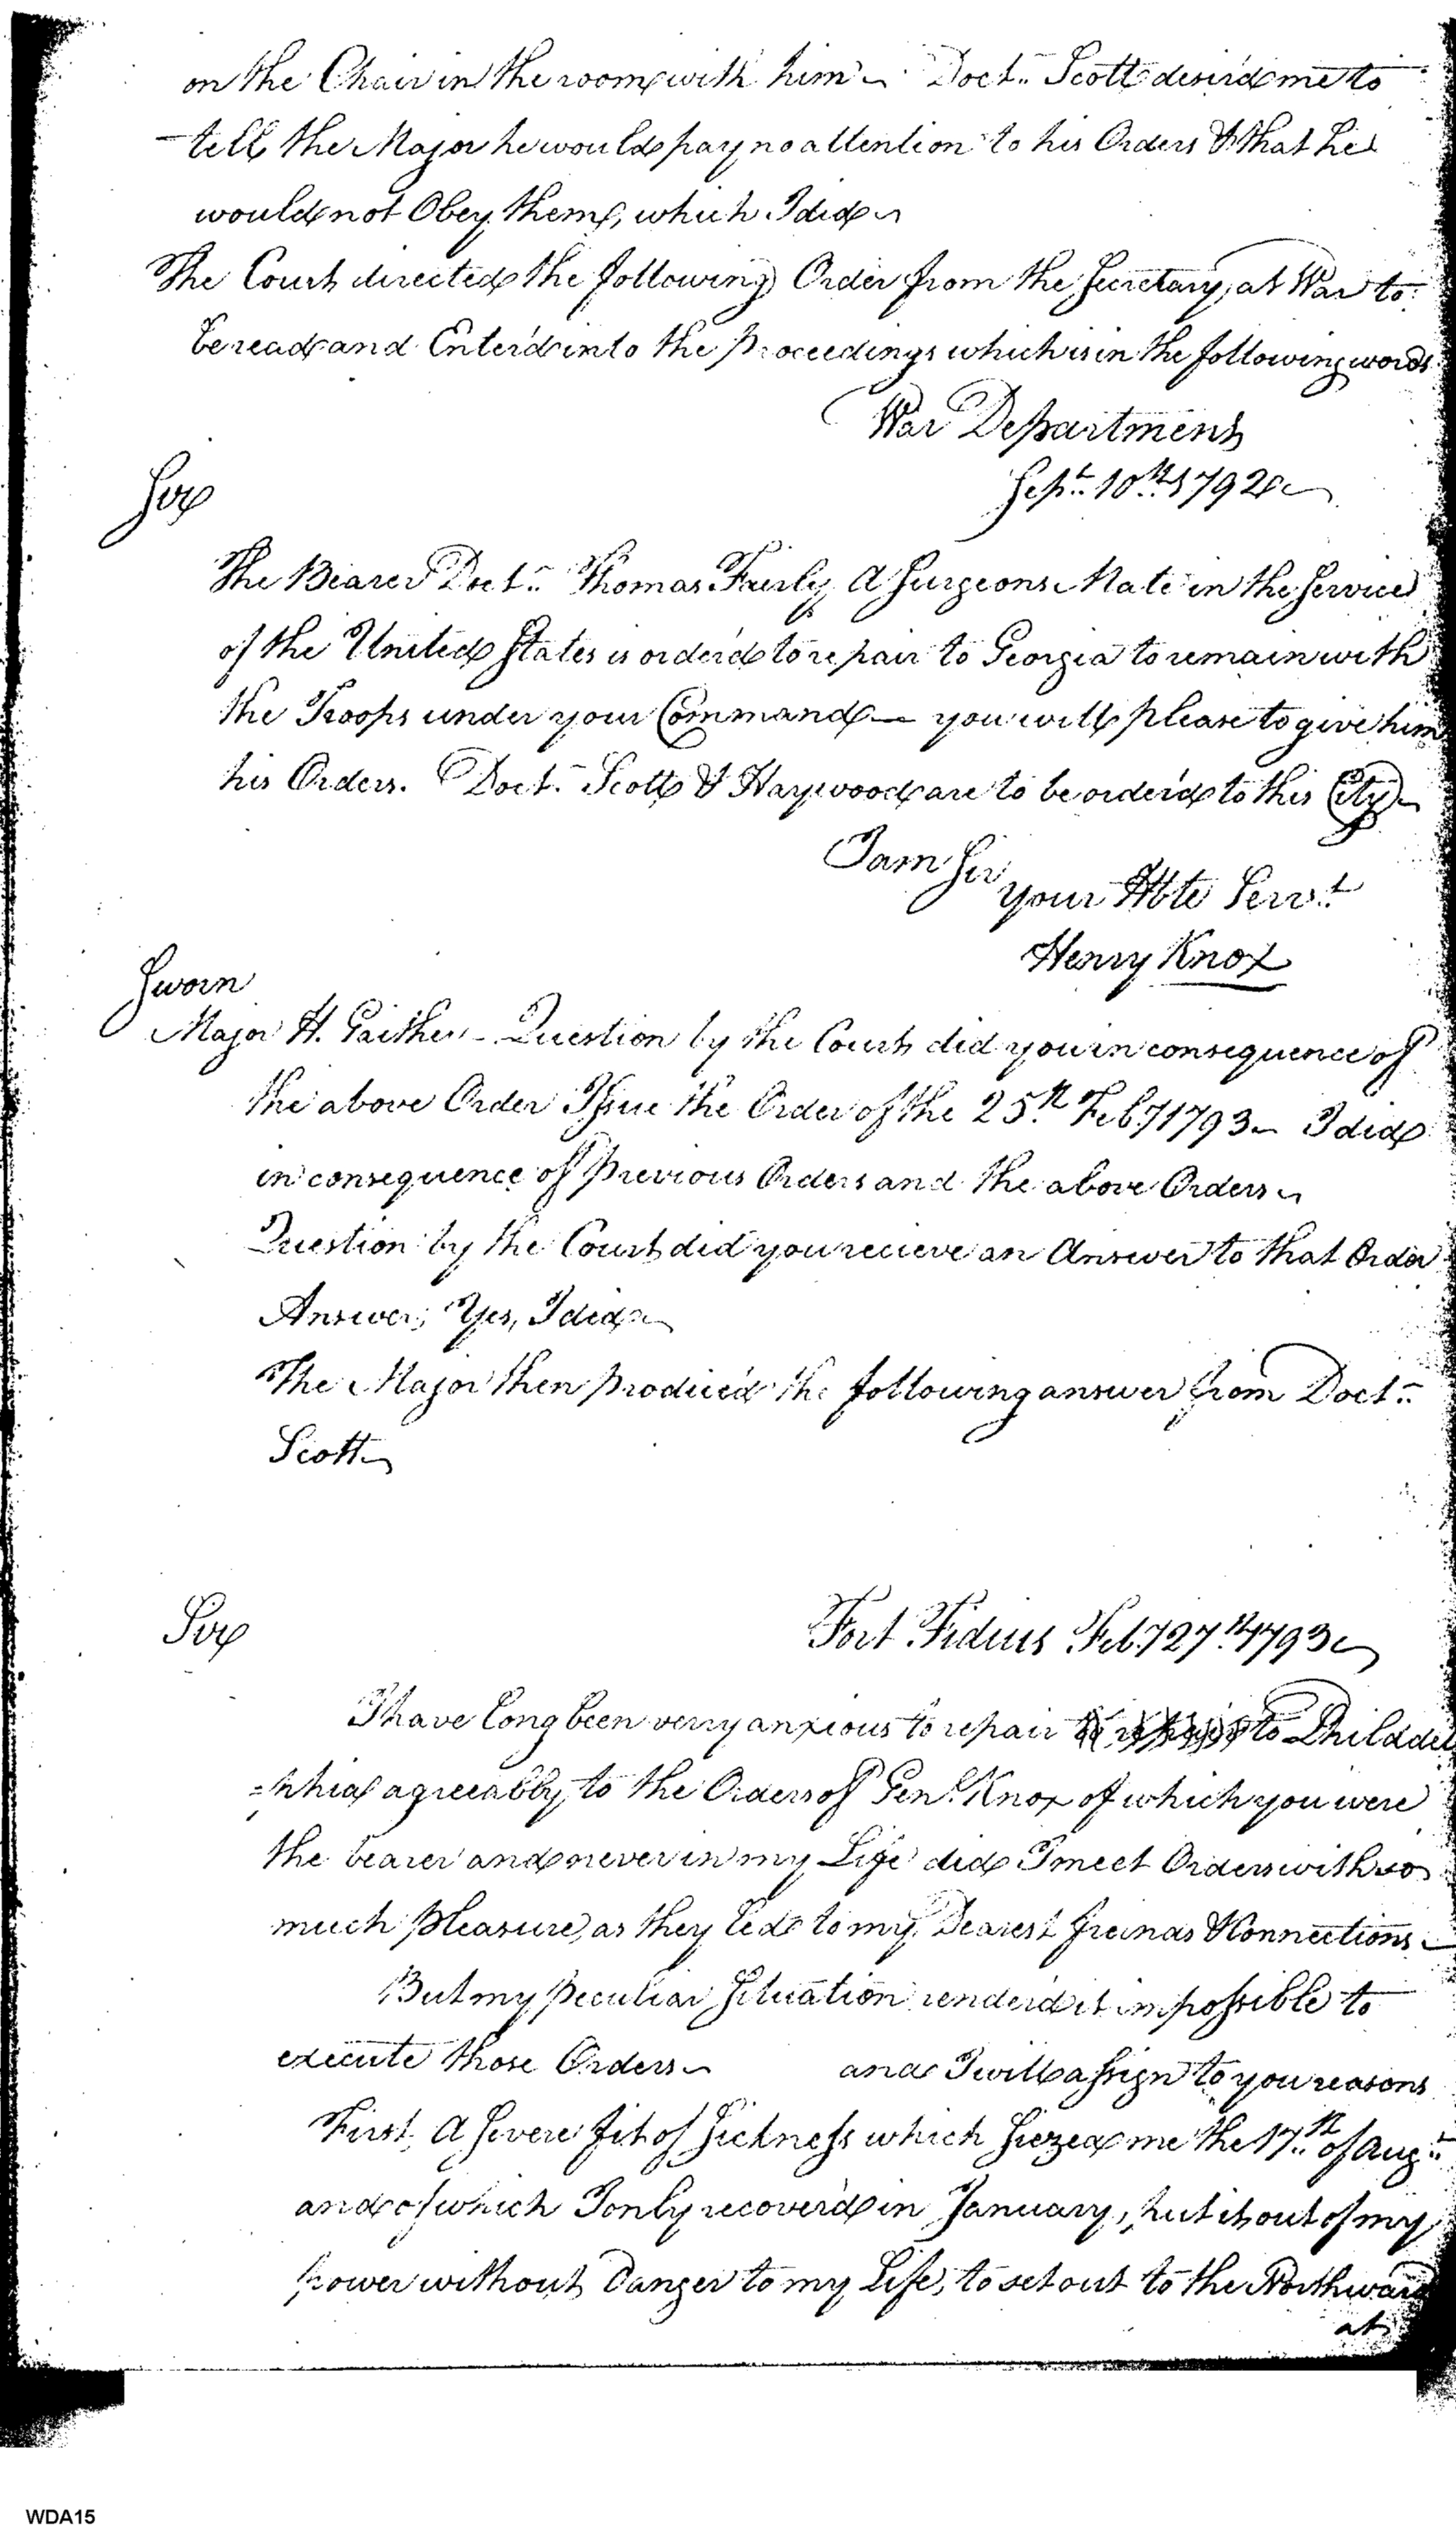 on the Chair in the room with him Doct. Scott desir'd me to
tell the Major he would pay no attention to his Orders & that he
would not Obey them, which I did
The Court directed the following Order from the Secretary at War to
be read and Enter'd into the Proceedings which is in the following words
War Department
Sept. 10th. 1792
Sir
The Bearer Doct. Thomas Fairly A Surgeons Mate in the Service
of the United States is order'd to repair to Georgia to remain with
the Troops under your Command — you will please to give him
his Orders. Doct. Scott & Haywood are to be order'd to this City
I am Sir
your Hble Servt.
Henry Knox
Sworn
Major H. Gaither - Question by the Court did you in consequence of
the above Order Issue the Order of the 25th. Feby 1793 I did
in consequence of Previous Orders and the above Orders
Question by the Court did you recieve an Answer to that Order
Answer, Yes, I did
The Major then produced the following answer from Doct.
Scott
Fort Fidius Feby 27th. 1793
Sir
I have long been verry anxious to repair to Philadel
=phia agreeably to the Orders of Genl. Knox of which you were
the bearer and never in my Life did I meet Orders with so
much pleasure, as they led to my Dearest freinds & Connections
But my Peculiar Situation render'd it impossible to
execute those Orders and I will assign to you reasons
First, A Severe fit of Sickness which Siezed me the 17th. of Augt.
and of which I only recover'd in January, put it out of my
power without Danger to my Life, to set out to the Northward
at
WDA15